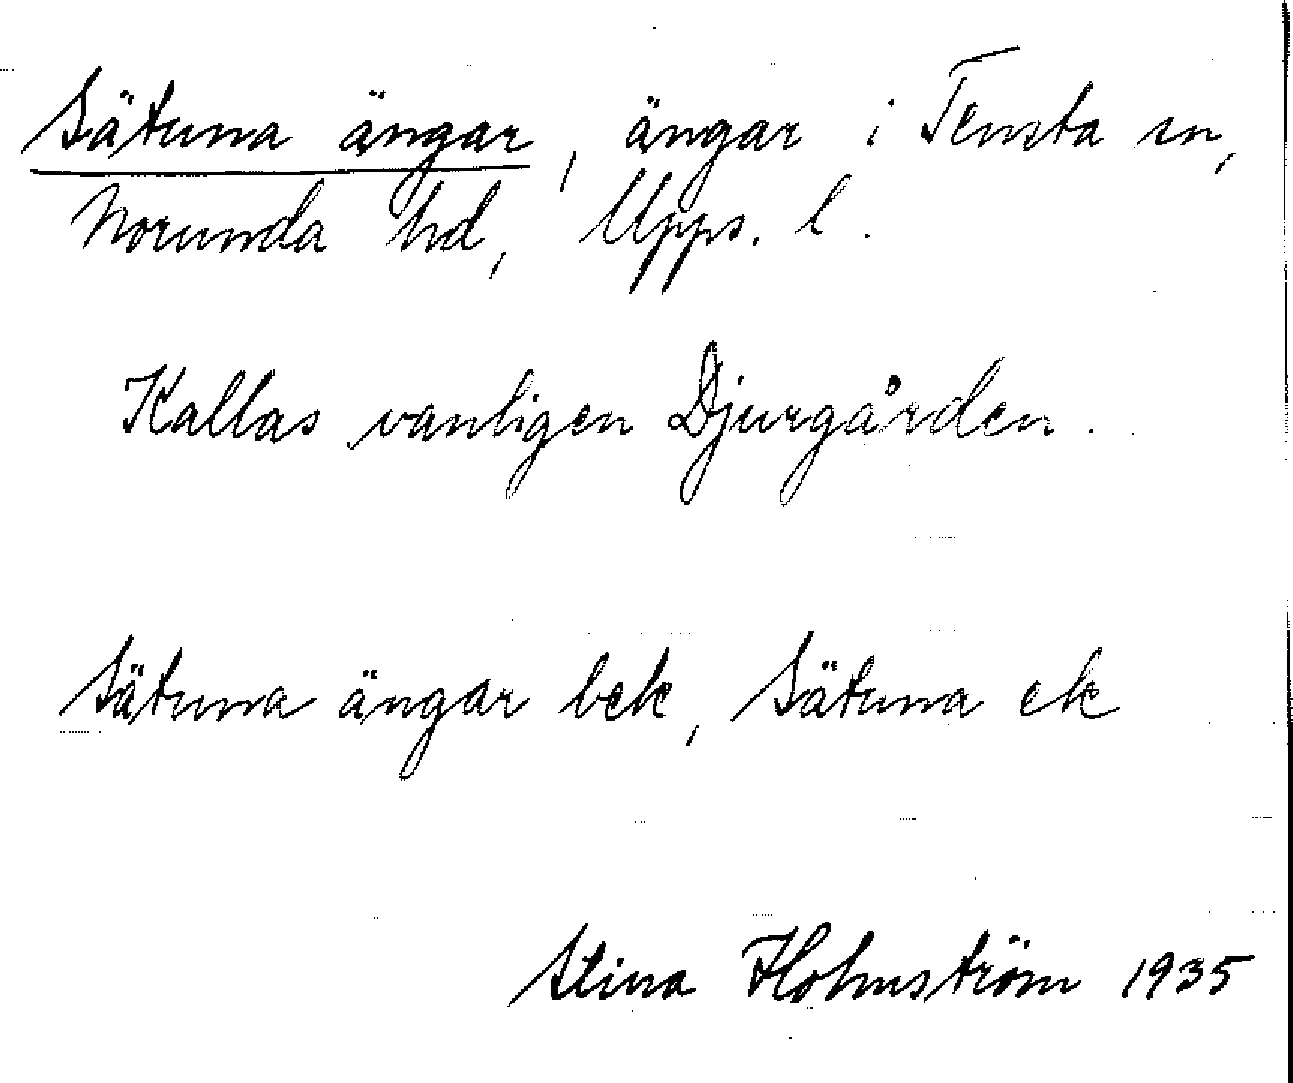 Sätuna ängar, ängar i Tensta sn,
Norunda hd, Upps. l.
Kallas vanligen Djurgården.
Sätuna ängar bek, Sätuna ek
Stina Holmström 1935